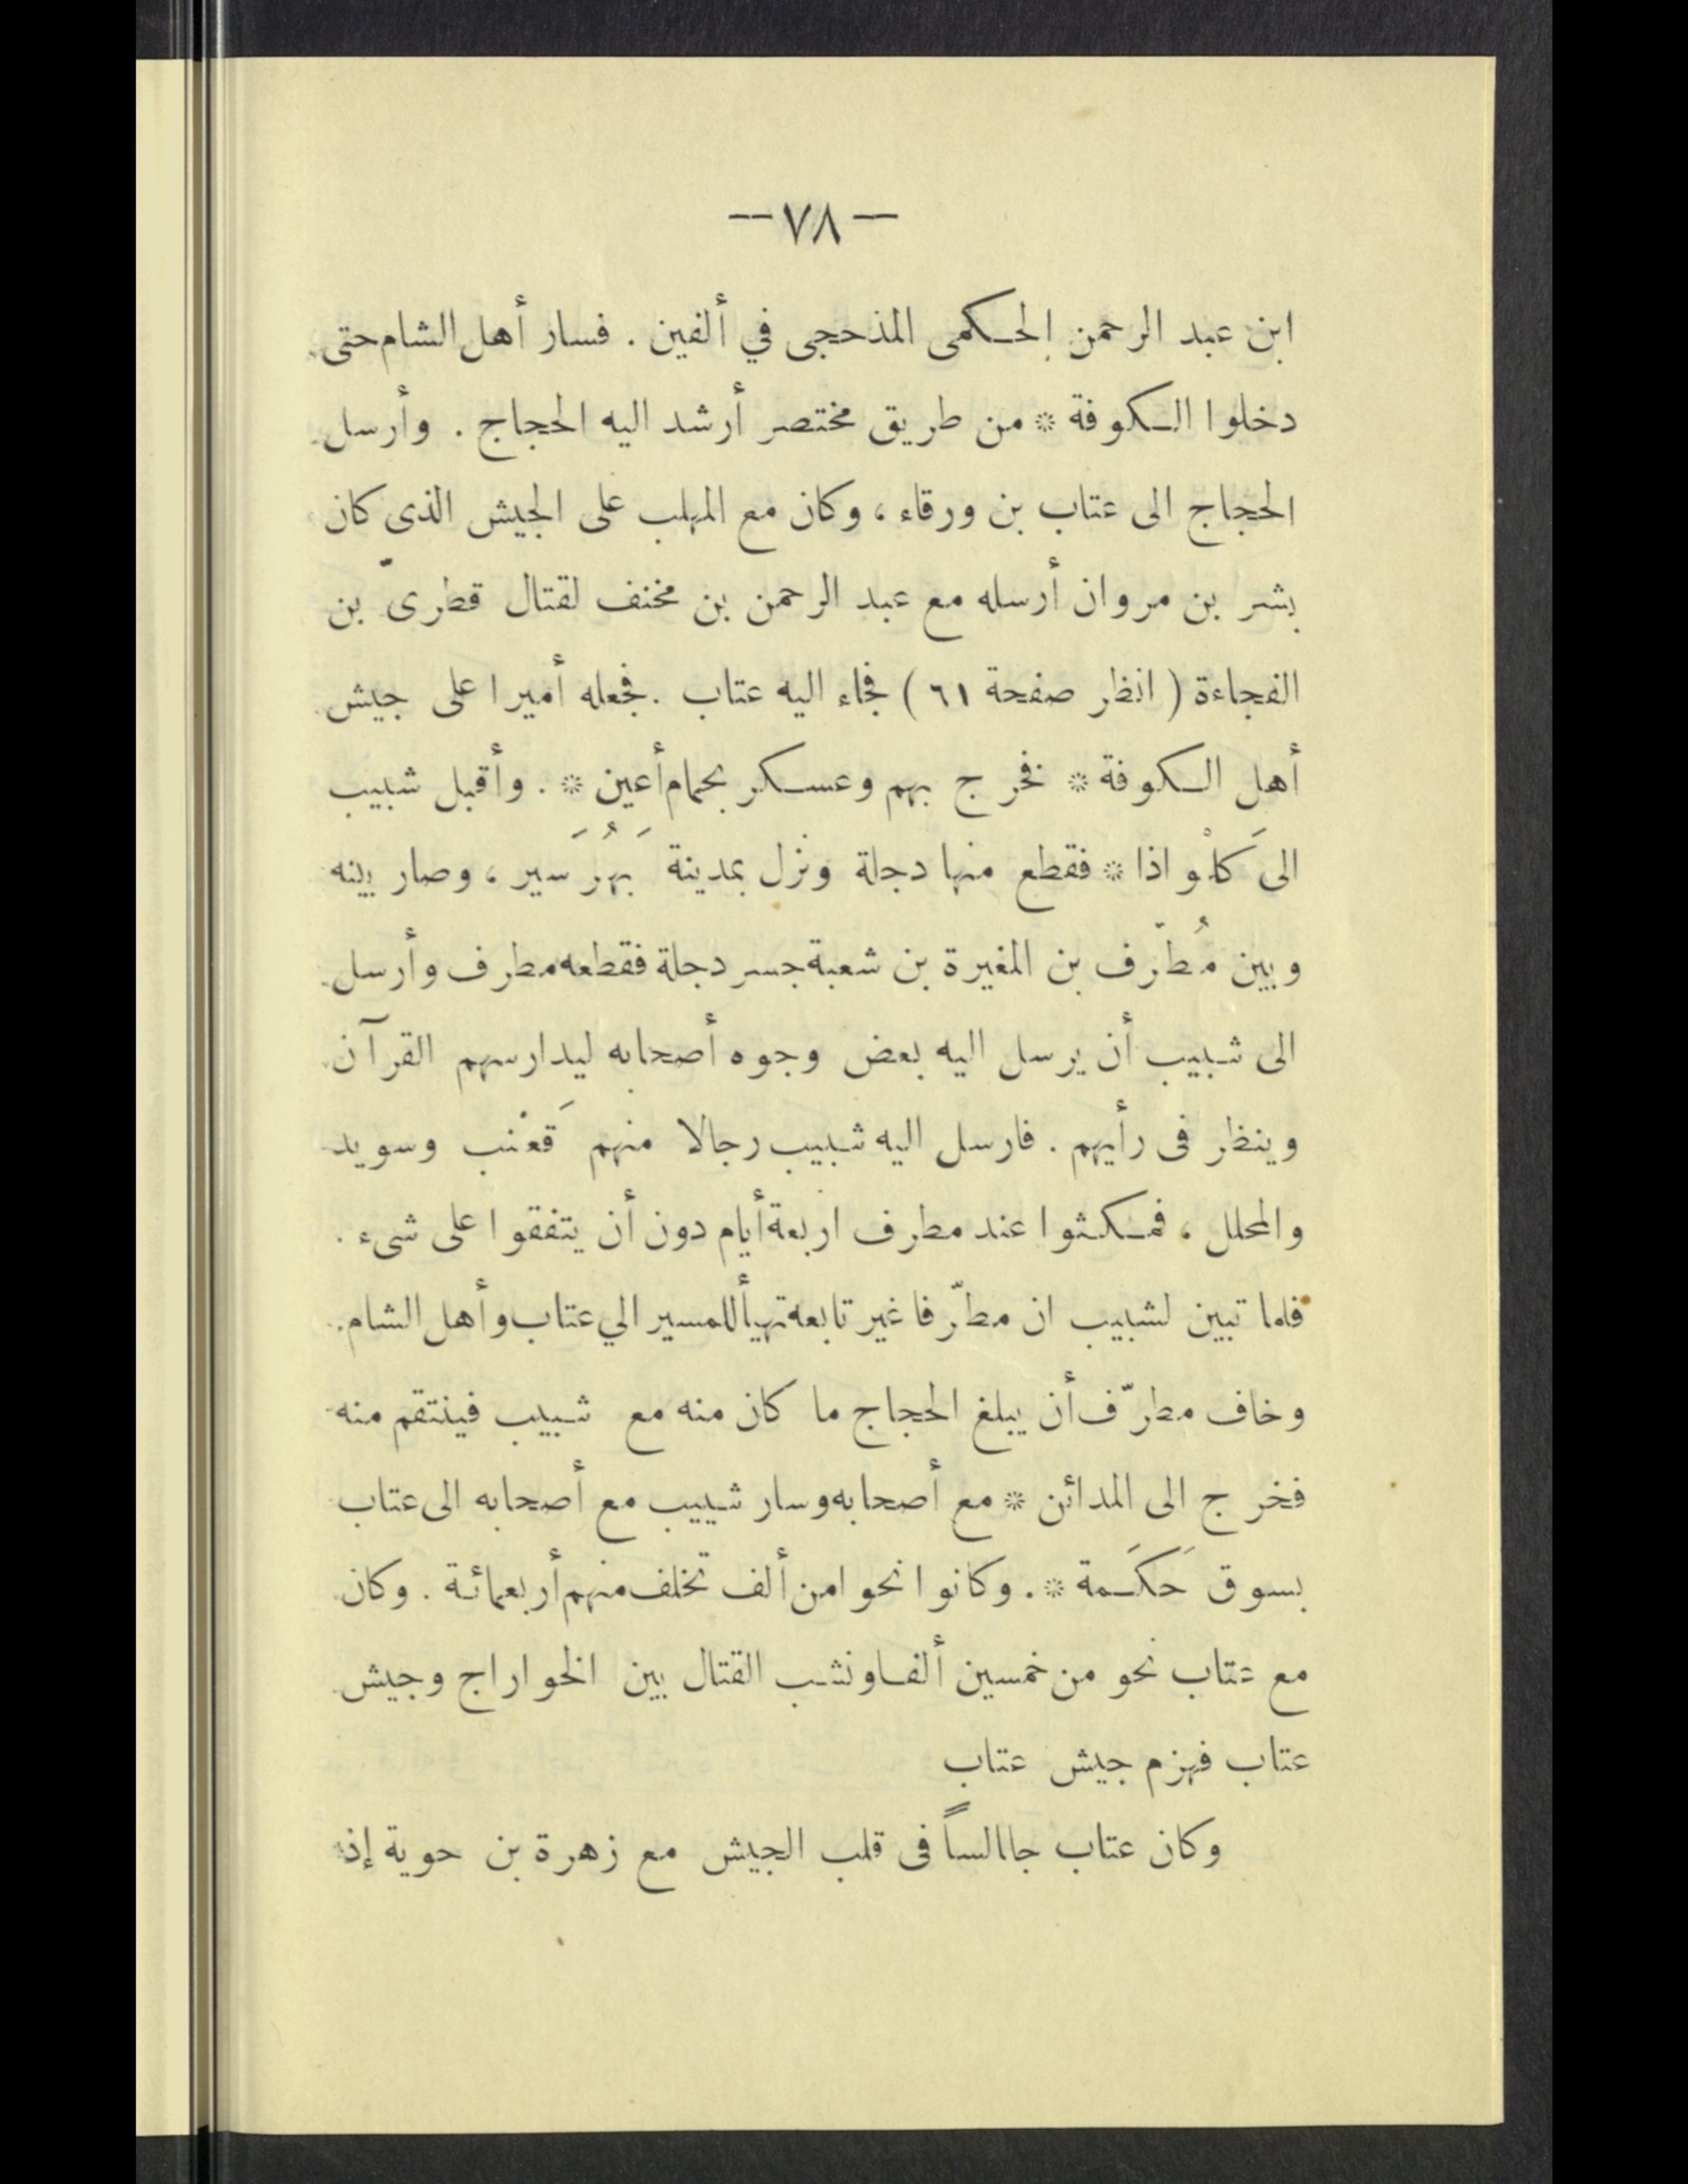 — ٧٨ —
ابن عبد الرحمن الحكمى المذحجى في ألفين . فسار أهل الشام حتى
دخلوا الكوفة * من طريق مختصر أرشد اليه الحجاج . وأرسل
الحجاج الى عتاب بن ورقاء ، وكان مع المهلب على الجيش الذى كان
بشر بن مروان أرسله مع عبد الرحمن بن مخنف لقتال قطرىّ بن
الفجاءة ( انظر صفحة ٦١ ) فجاء اليه عتاب . فجعله أميرا على جيش
أهل الكوفة * فخرج بهم وعسكر بحمام أعين * . وأقبل شبيب
الى كَلْواذا * فقطع منها دجلة ونزل بمدينة بَهُرَسير ، وصار بينه
وبين مُطرّف بن المغيرة بن شعبة جسر دجلة فقطعه مطرف وأرسل
الى شبيب أن يرسل اليه بعض وجوه أصحابه ليدارسهم القرآن
وينظر فى رأيهم . فارسل اليه شبيب رجالا منهم قَعْنب وسويد
والمحلل ، فمكثوا عند مطرف اربعة أيام دون أن يتفقوا على شىء .
فلما تبين لشبيب ان مطرّفا غير تابعه تهيأ للمسير الي عتاب وأهل الشام .
وخاف مطرّف أن يبلغ الحجاج ما كان منه مع شبيب فينتقم منه
فخرج الى المدائن * مع أصحابه وسار شبيب مع أصحابه الى عتاب
بسوق حَكَمة * . وكانوا نحوا من ألف تخلف منهم أربعمائة . وكان
مع عتاب نحو من خمسين ألفا ونشب القتال بين الخواراج وجيش
عتاب فهزم جيش عتاب
وكان عتاب جاالساً فى قلب الجيش مع زهرة بن حوية إذ